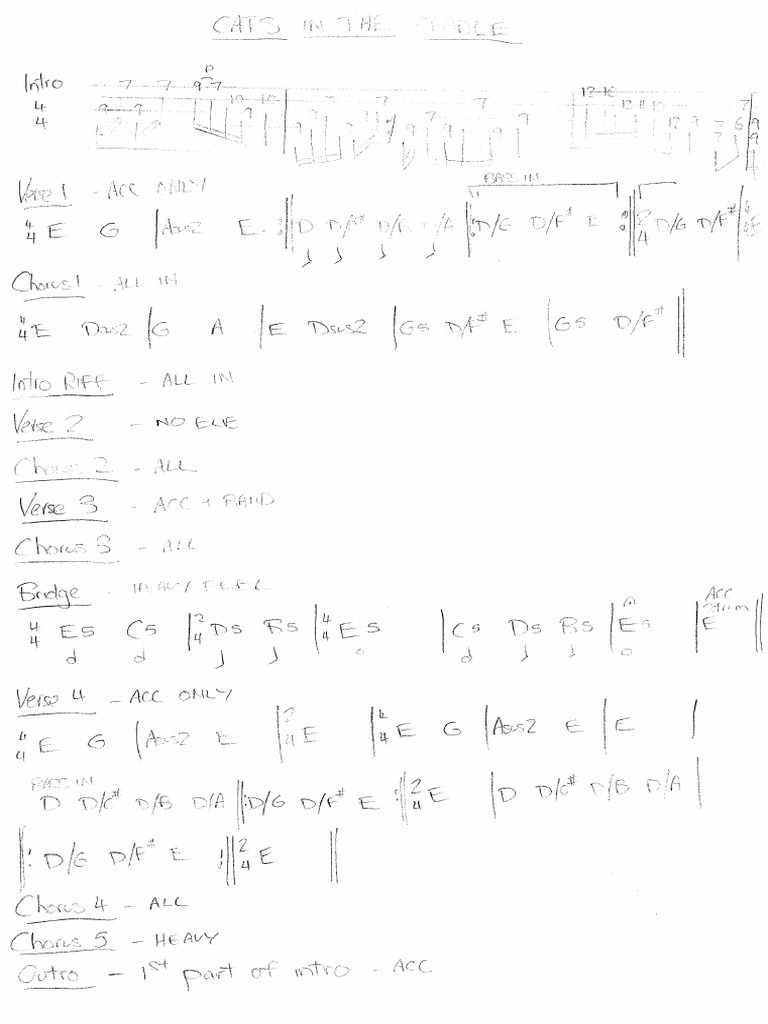 CATS IN THE CRADLE
Intro
4/4 7 7 9 7 9 9 10 10 9 7 7 7 9 9 12 10 12 11 10 12 9 7 7 6 9 9
Verse 1 - ACC ONLY
BASS IN
4/4 E G | Asus2 E :||: D D/C# D/B D/A |: D/G D/F# E :|| 2/4 D/G D/F# | 4/4 E
Chorus 1 - ALL IN
4/4 E Dsus2 | G A | E Dsus2 | G5 D/F# E | G5 D/F# ||
Intro RIFF - ALL IN
Verse 2 - NO ELE
Chorus 2 - ALL
Verse 3 - ACC + BAND
Chorus 3 - ALL
Bridge - HEAVY
ACC Strum
4/4 E5 C5 | 2/4 D5 B5 | 4/4 E5 | C5 D5 B5 | E5 | E ||
Verse 4 - ACC ONLY
4/4 E G | Asus2 E | 2/4 E | 4/4 E G | Asus2 E | E |
BASS IN
D D/C# D/B D/A ||: D/G D/F# E :|| 2/4 E | D D/C# D/B D/A |
||: D/G D/F# E :|| 2/4 E ||
Chorus 4 - ALL
Chorus 5 - HEAVY
Outro - 1st part of intro - ACC